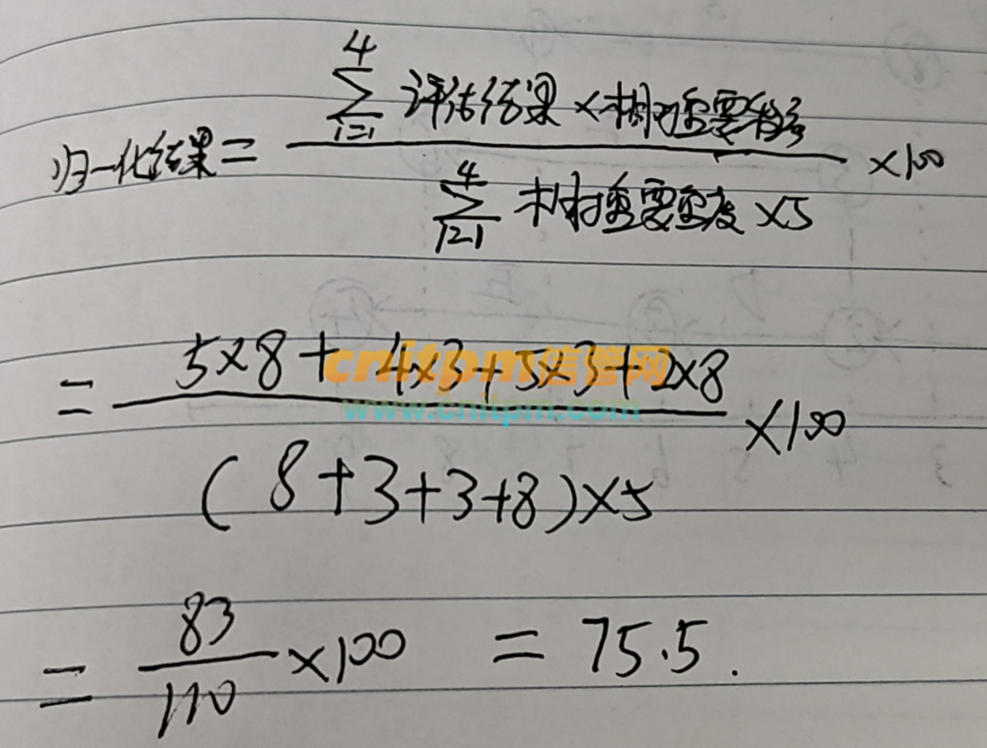 归一化结果 = \frac{\sum_{i=1}^{4} 评估结果 × 相对重要程度}{\sum_{i=1}^{4} 相对重要程度 × 5} × 100
= \frac{5×8 + 4×3 + 5×3 + 2×8}{(8+3+3+8)×5} × 100
cnitpm信管网
www.cnitpm.com
= \frac{83}{110} × 100 = 75.5.